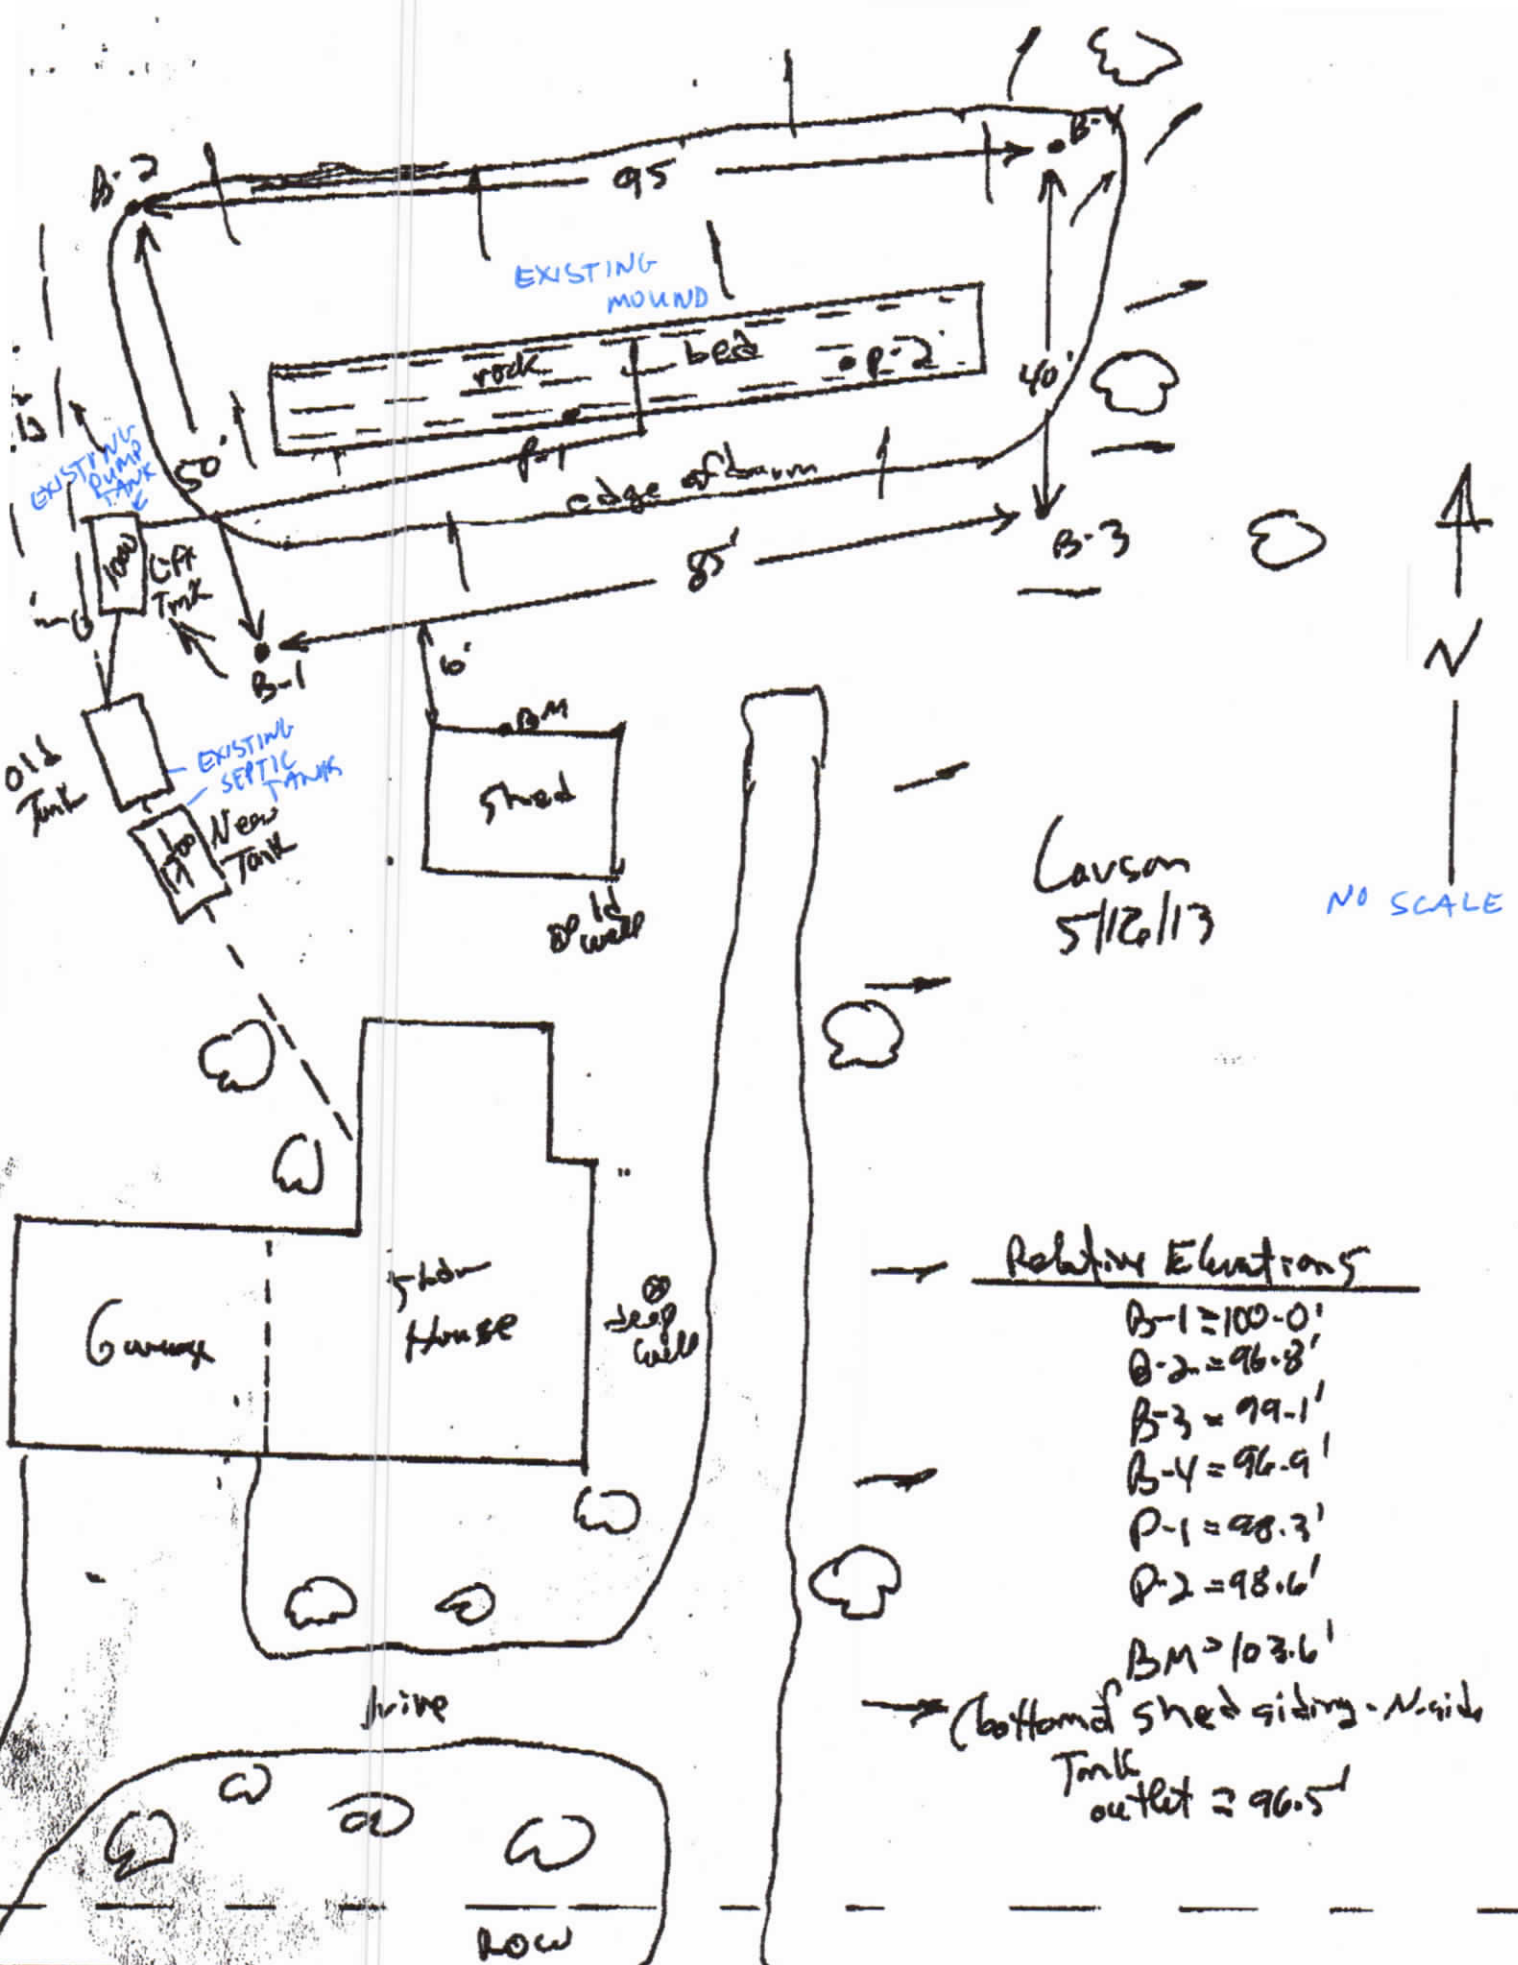 B-2
B-4
95'
EXISTING
MOUND
rock
bed
P-2
40'
P-1
50'
EXISTING
PUMP
TANK
edge of burm
1000
Lift
Tank
85'
B-3
B-1
6'
N
BM
Shed
Old
Tank
EXISTING
SEPTIC
TANKS
New
Tank
Old
well
NO SCALE
Garage
5 bdr
House
deep
well
Relative Elevations
B-1=100.0'
B-2=96.8'
B-3=99.1'
B-4=96.9'
P-1=98.3'
P-2=98.6'
BM=103.6'
(bottom of shed siding - N.side
Tank
outlet = 96.5'
drive
ROW